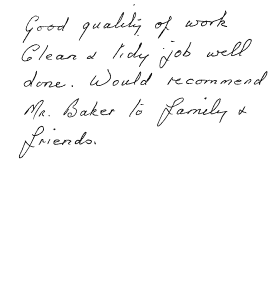 Good quality of work
Clean & tidy job well
done. Would recommend
Mr. Baker to family &
friends.